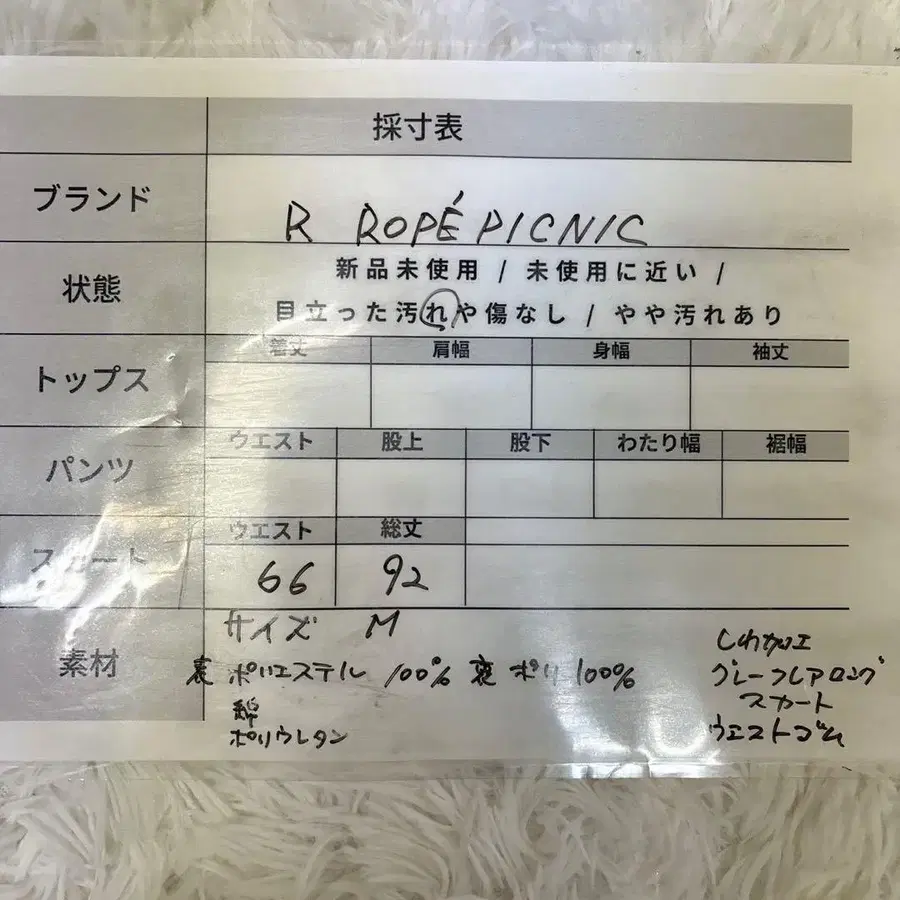 採寸表
ブランド R ROPÉ PICNIC
状態 新品未使用 / 未使用に近い /
目立った汚れや傷なし / やや汚れあり
トップス 着丈 肩幅 身幅 袖丈
パンツ ウエスト 股上 股下 わたり幅 裾幅
スカート ウエスト 総丈
66 92
素材 サイズ M
表 ポリエステル 100% 裏 ポリ 100%
綿
ポリウレタン
しわ加工
グレーフレアロング
スカート
ウエストゴム